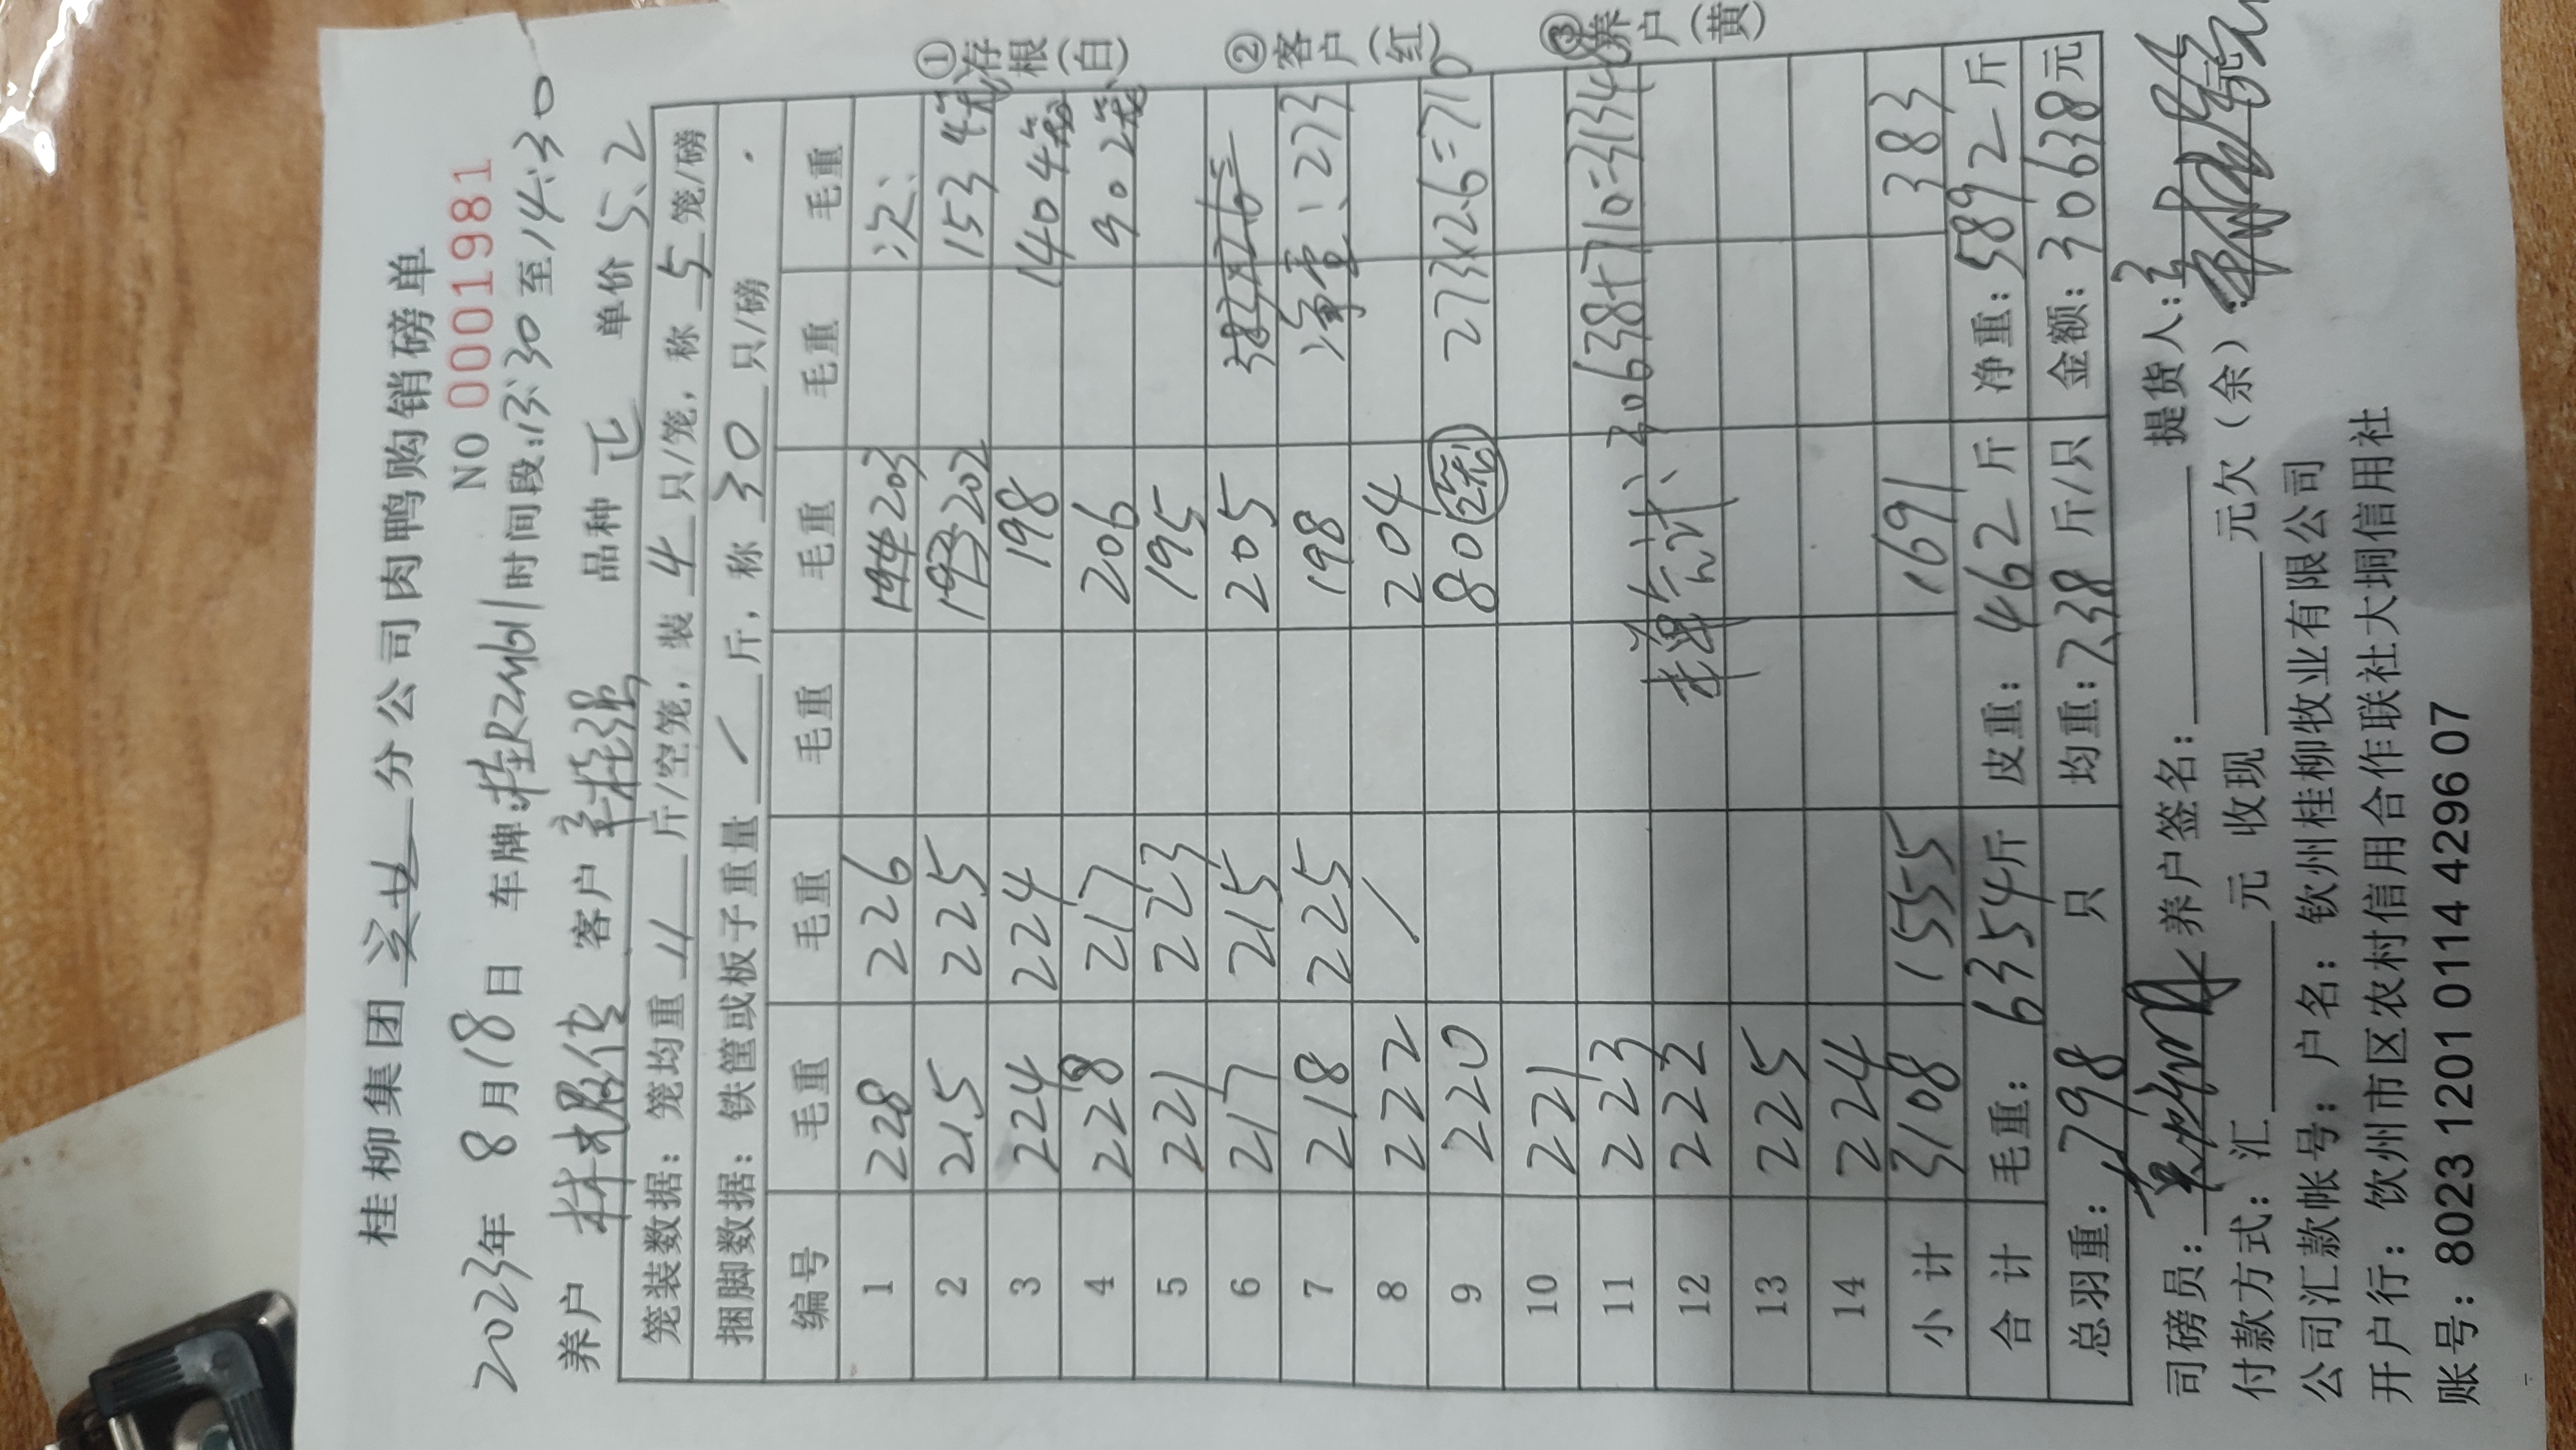 桂柳集团 分公司肉鸭购销磅单
NO 0001981
2023年 8月18日 车牌:桂R2M611 时间段:13:30至14:30
养户 客户 品种 正 单价 5.2
笼装数据：笼均重 11 斤/空笼，装 4 只/笼，称 5 笼/磅
捆脚数据：铁筐或板子重量 / 斤，称 30 只/磅
编号 毛重 毛重 毛重 毛重 毛重 毛重
1 228 226 203 次:
2 215 225 202 153 4笼
3 224 224 198 140 4笼
4 228 217 206 90 2笼
5 221 223 195
6 217 215 205
7 218 225 198 净重: 273
8 222 / 204
9 220 80(2笼) 273×2.6=710
10 221
11 223 30638+710=31348
12 222 总计:
13 225
14 224
小计 3108 1555 1691 383
合计 毛重：6354斤 皮重：462斤 净重：5892斤
总羽重：798 只 均重：7.38斤/只 金额：30638元
司磅员： 养户签名： 提货人：
付款方式：汇 元 收现 元欠（余）：
公司汇款帐号：户名：钦州桂柳牧业有限公司
开户行：钦州市区农村信用合作联社大垌信用社
账号：8023 1201 0114 4296 07
①存根(白)
②客户(红)
③养户(黄)